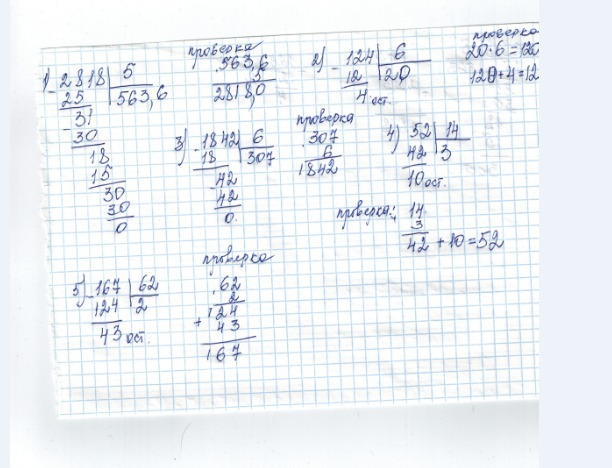 1) - 2818 | 5
25 563,6
- 31
30
18
15
30
30
0
проверка
563,6
5
2818,0
2) - 124 | 6
12 20
4 ост.
проверка
20·6=120
120+4=12
3) - 1842 | 6
18 307
42
42
0
проверка
307
6
1842
4) 52 | 14
42 3
10 ост.
проверка:
14
3
42 + 10 = 52
5) - 167 | 62
124 2
43 ост.
проверка
62
2
124
+ 43
167